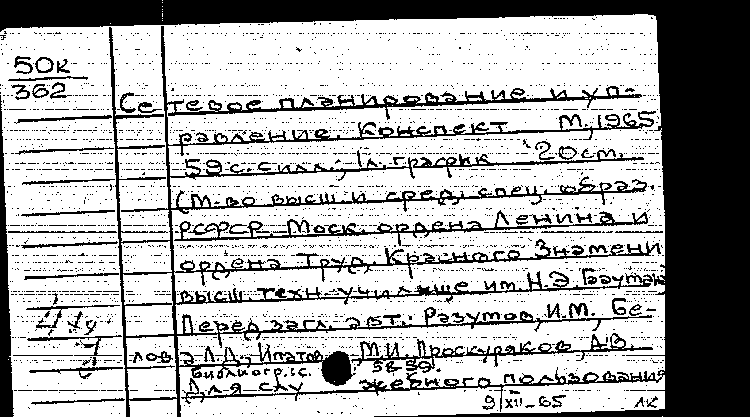 50к
362
Сетевое планирование и уп-
равление. Конспект М., 1965.
59 с. с илл.; 1 л. график 20 см.
(М-во высш. и сред. спец. образ.
РСФСР. Моск. ордена Ленина и
ордена Труд. Красного Знамени
высш. техн. училище им. Н.Э. Бауман
Перед загл. авт.: Разумов, И.М., Бе-
лова Л.Д., Ипатов М.И. Проскуряков, А.В.
Библиогр.: с. 58-59.
Для служебного пользования
9/XII-65 ЛК